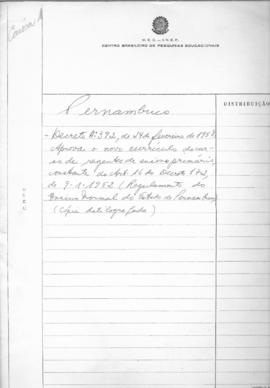 Caixa 1
M.E.C. - I.N.E.P.
CENTRO BRASILEIRO DE PESQUISAS EDUCACIONAIS
DISTRIBUIÇÃO
Pernambuco
- Decreto Nº 392, de 24 de fevereiro de 1958,
Aprova o novo currículo do cur-
so de regentes de ensino primário,
constante do Art. 16 do Decreto 172,
de 9-1-1952 (Regulamento do
Ensino Normal do Estado de Pernambuco)
(Cópia datilografada)